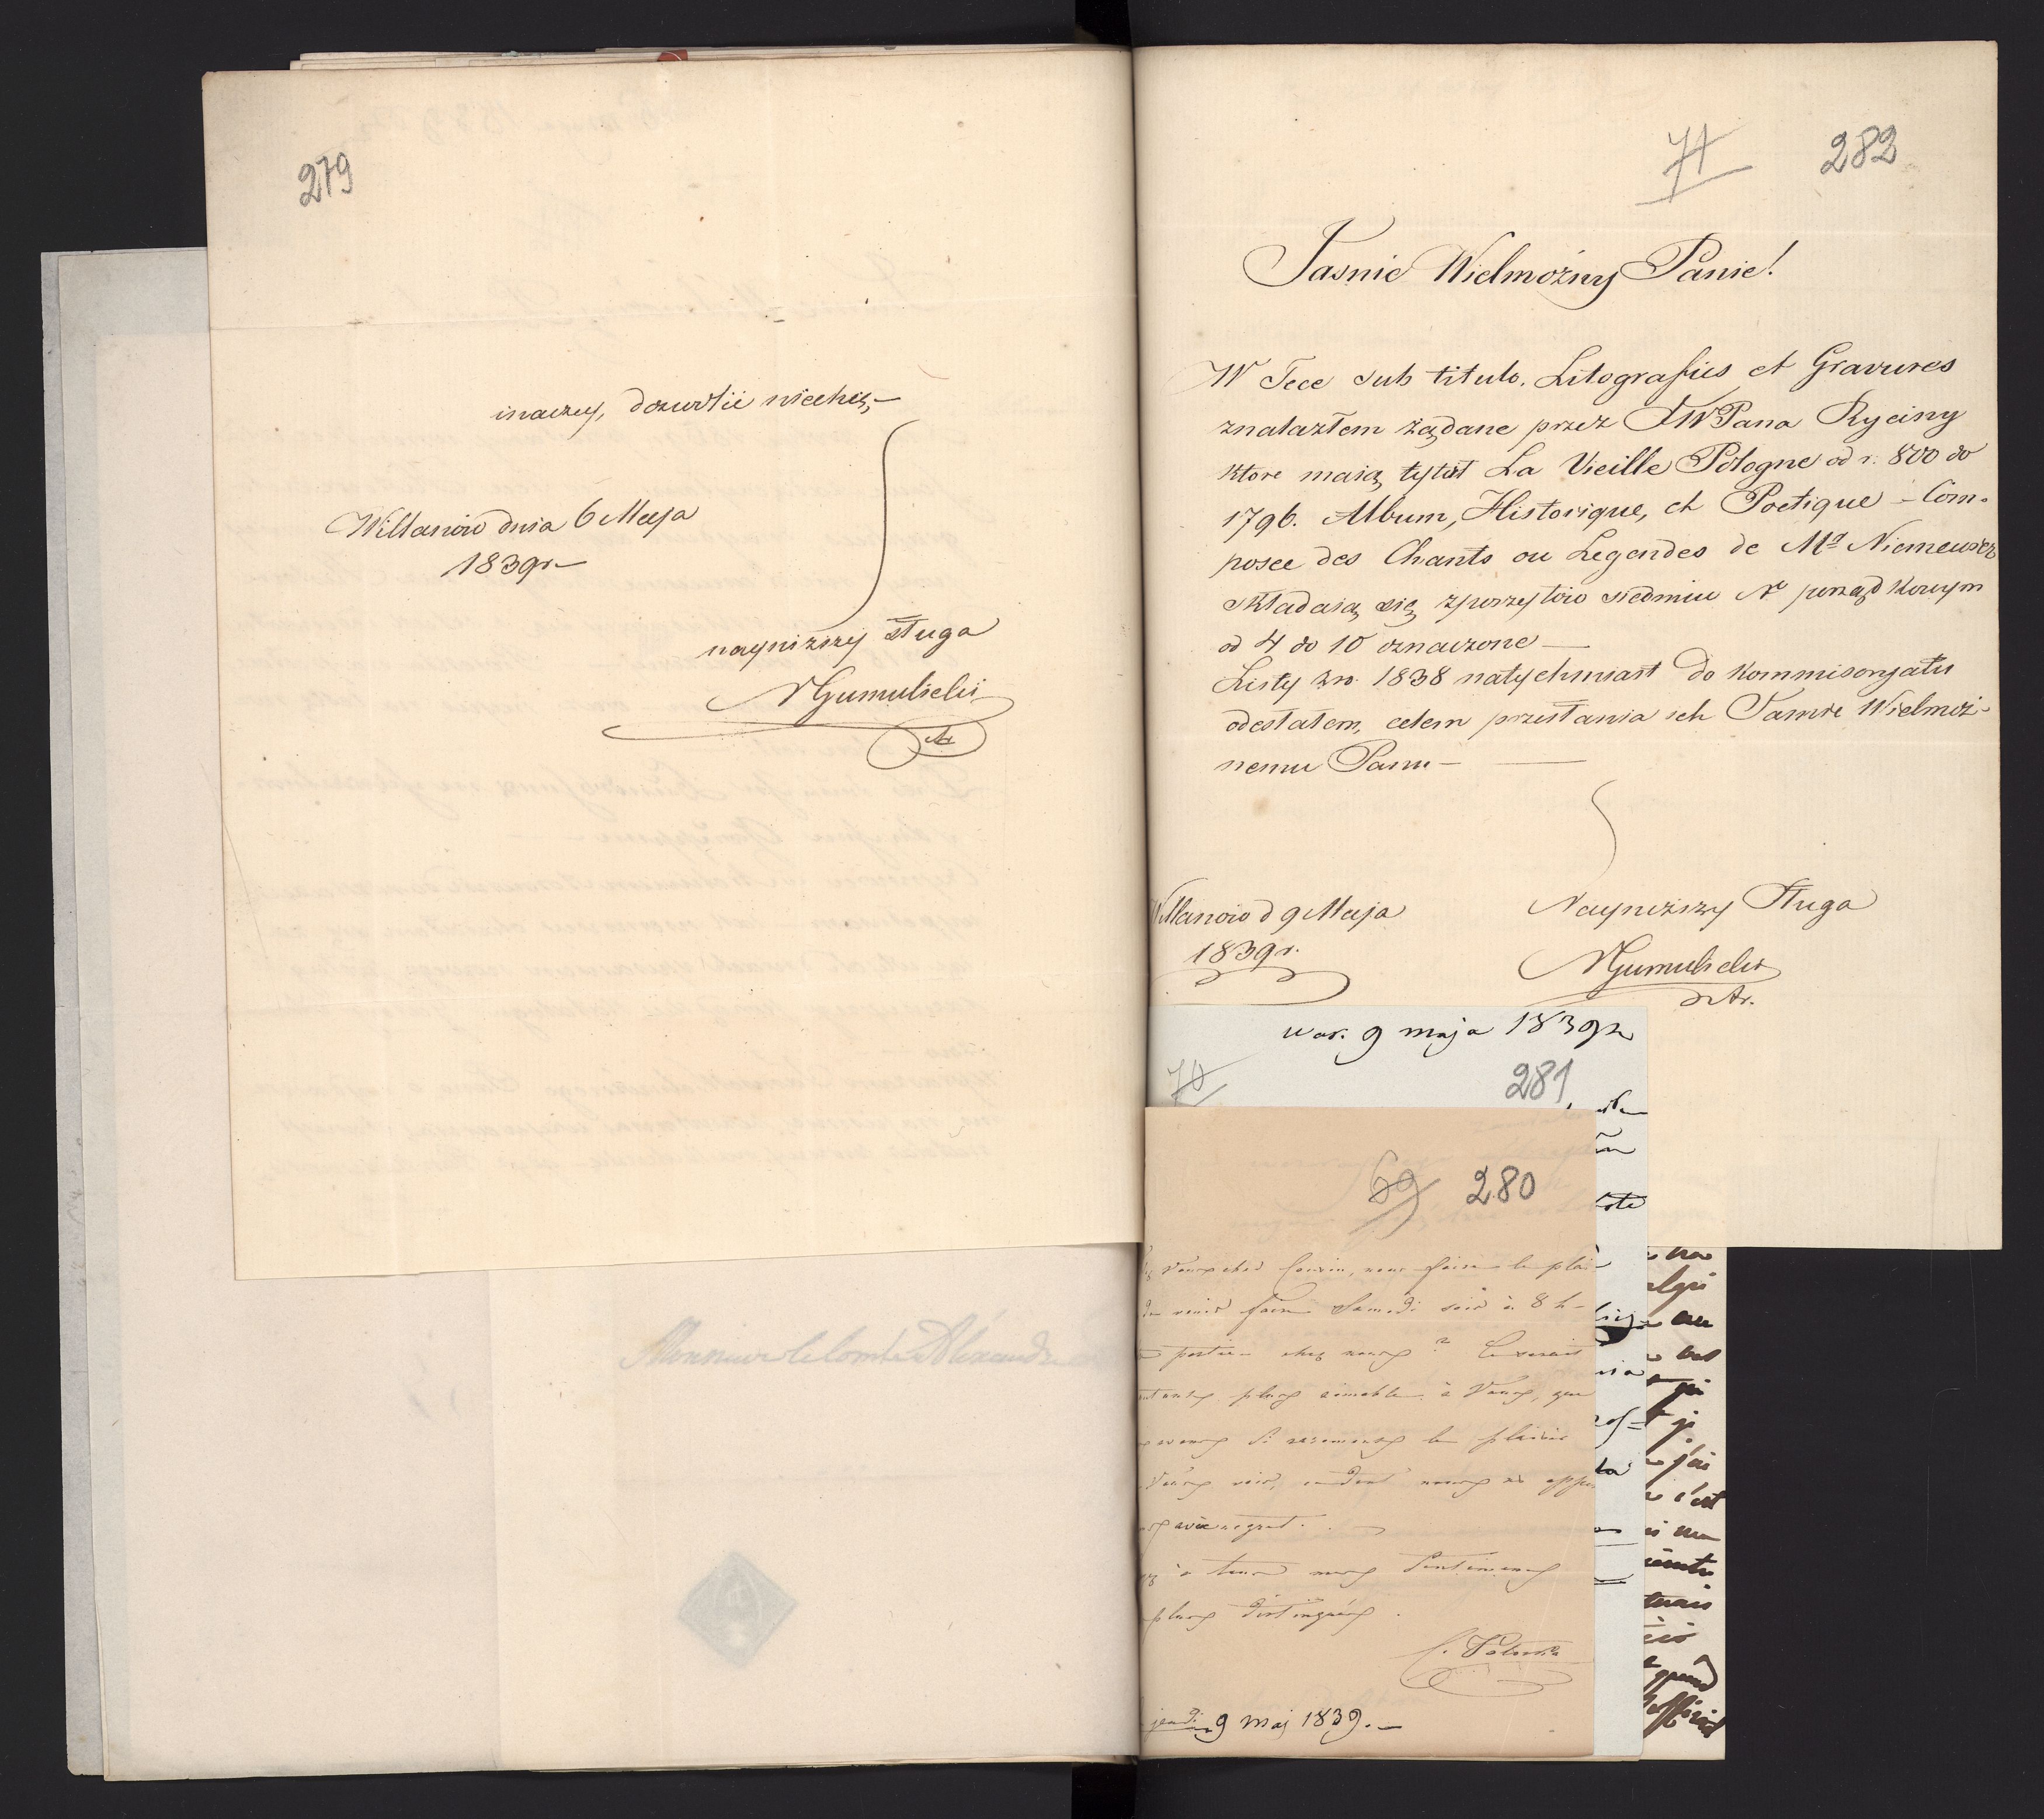 279
inaczey, dozwolić niechcę,—
Willanow dnia 6 Maja
1839r—
nayniższy sługa
NGumulicki
282
71
Jasnie Wielmożny Panie!
W Tece sub titulo. Litografies et Gravures
znalazłem żądane przez JWPana Ryciny
ktore maią tytuł La Vieille Pologne od r. 800 do
1796. Album, Historique, et Poetique – Com-
posee des Chants ou Legendes de Mr Niemcewicz
składaią się zposzytow siedmiu Nr porządkowym
od 4 do 10 oznaczone —
Listy zr. 1838 natychmiast do Kommisoryatu
odesłałem, celem przesłania ich Jasnie Wielmoż-
nemu Panu —
Willanow d 9 Maja
1839r.
Nayniższy Sługa
NGumulicki
war. 9 maja 1839r
70
281
69 280
Vous cher Cousin, nous faire le plai
de venir faire Samedi soir à 8 h
partie chez nous? Ce serait
plus aimable à Vous, que
avons si rarement le plaisir
Vous voir,
avec regret.
nos Sentimens
plus distingués.
jeudi 9 maj 1839.—
Monsieur le Comte Alexandre